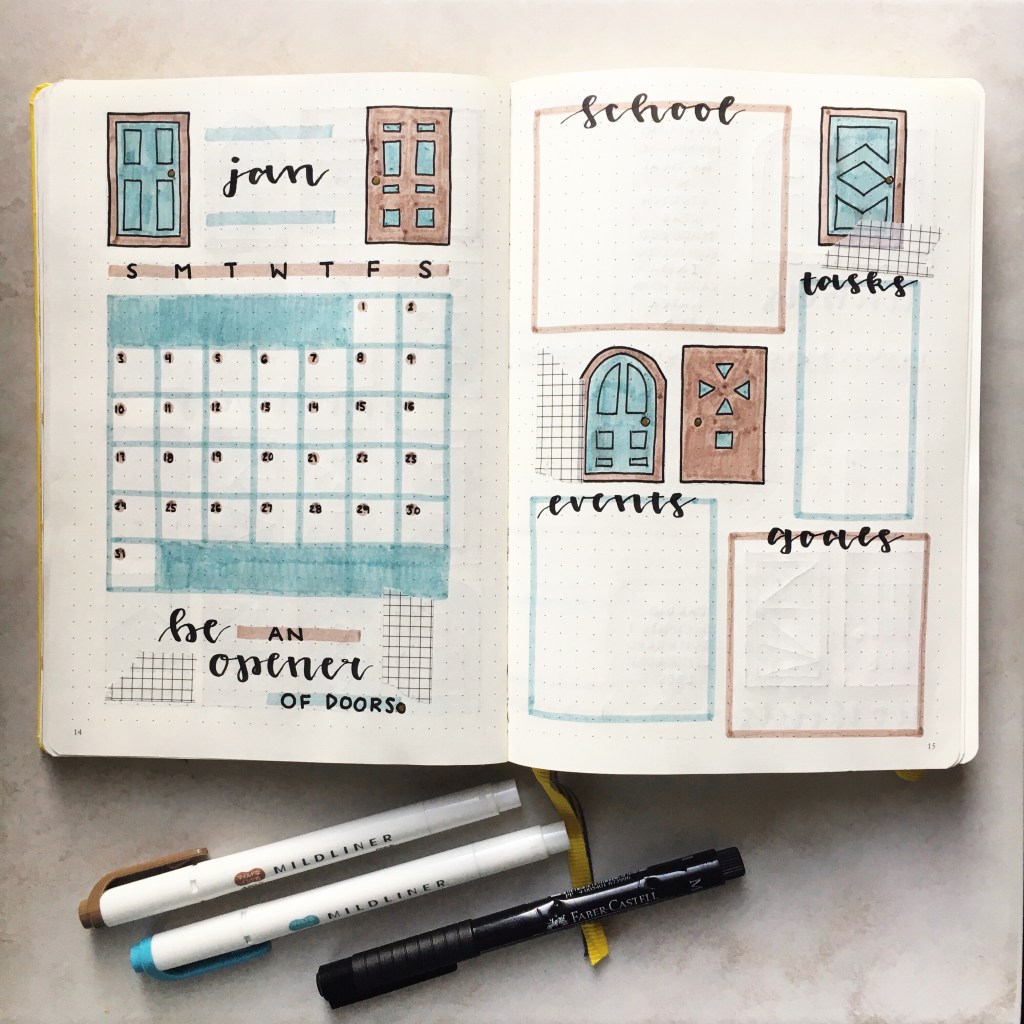 jan
S M T W T F S
1 2
3 4 5 6 7 8 9
10 11 12 13 14 15 16
17 18 19 20 21 22 23
24 25 26 27 28 29 30
31
be AN
opener
OF DOORS.
14
school
tasks
events
goals
15
MILDLINER
MILDLINER
FABER CASTELL
M